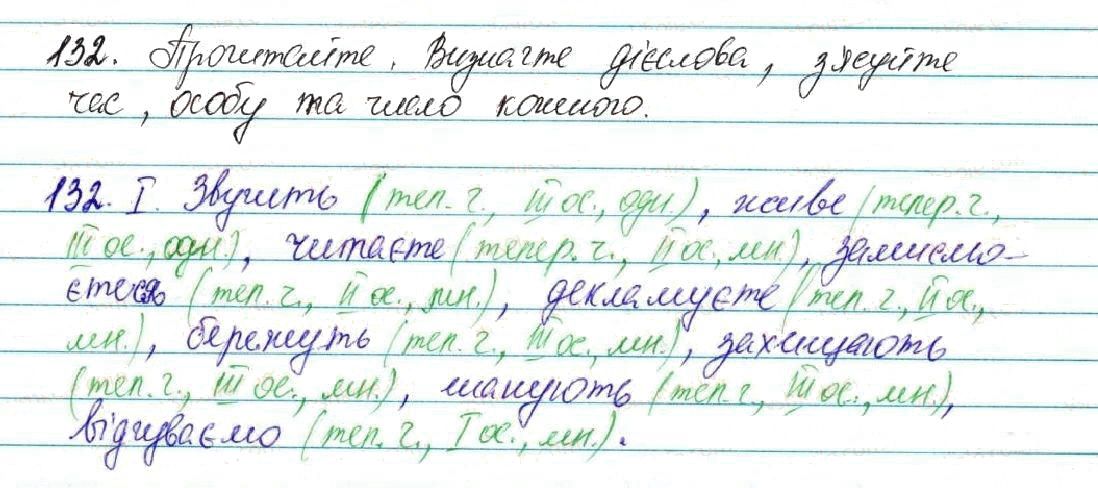 132. Прочитайте. Визначте дієслова, з'ясуйте
час, особу та число кожного.
132. I. Звучить (теп. ч., III ос., одн.), живе (тепер. ч.,
III ос., одн.), читаєте (тепер. ч., II ос., мн.), замислю-
єтеся (теп. ч., II ос., мн.), декламуєте (теп. ч., II ос.,
мн.), бережуть (теп. ч., III ос., мн.), захищають
(теп. ч., III ос., мн.), шанують (теп. ч., III ос., мн.),
відчуваємо (теп. ч., I ос., мн.).